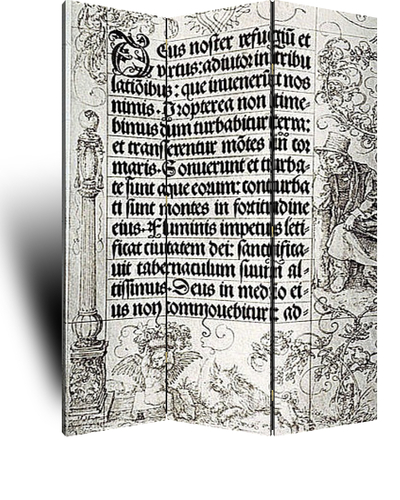 Deus noster refugiū et
virtus: adiutor in tribu
latiōibus: que inuenerūt nos
nimis. Propterea non time-
bimus dum turbabitur terra:
et transferentur mōtes in cor
maris. Sonuerunt et turba-
te sunt aque eorum: conturba
ti sunt montes in fortitudine
eius. Fluminis impetus leti-
ficat ciuitatem dei: sanctifica-
uit tabernaculum suum al-
tissimus. Deus in medio ei-
us non commouebitur: ad-